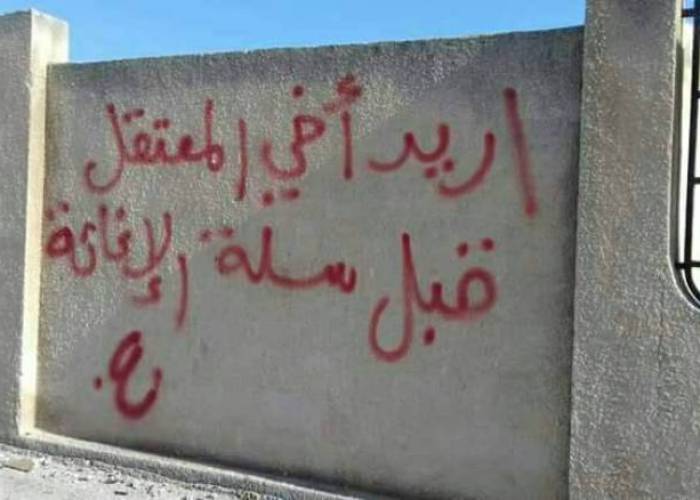 اريد أخي المعتقل
قبل سلة الإغاثة
ع.